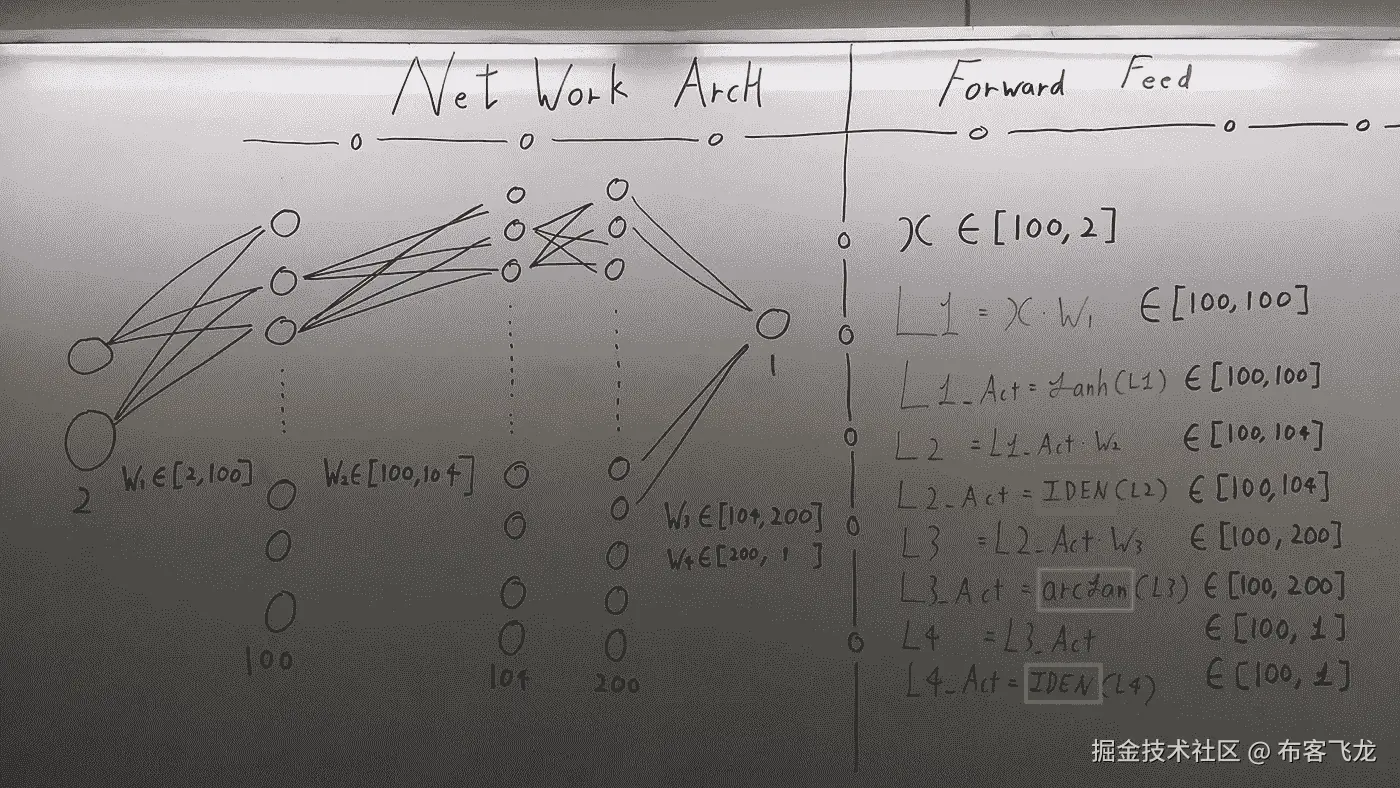 Net Work ArcH
Forward Feed
2
W₁ ∈ [2,100]
100
W₂ ∈ [100,104]
104
200
1
W₃ ∈ [104,200]
W₄ ∈ [200, 1 ]
X ∈ [100,2]
L1 = X · W₁ ∈ [100,100]
L1_Act = tanh(L1) ∈ [100,100]
L2 = L1_Act · W₂ ∈ [100,104]
L2_Act = IDEN(L2) ∈ [100,104]
L3 = L2_Act · W₃ ∈ [100,200]
L3_Act = arctan(L3) ∈ [100,200]
L4 = L3_Act ∈ [100,1]
L4_Act = IDEN(L4) ∈ [100,1]
掘金技术社区 @ 布客飞龙